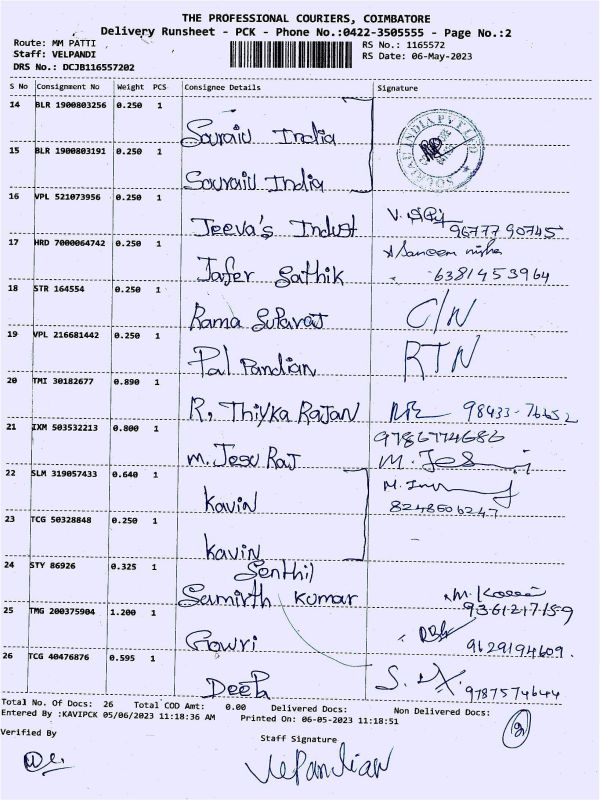 THE PROFESSIONAL COURIERS, COIMBATORE
Delivery Runsheet - PCK - Phone No.:0422-3505555 - Page No.:2
Route: MM PATTI
RS No.: 1165572
Staff: VELPANDI
RS Date: 06-May-2023
DRS No.: DCJB116557202
S No Consignment No Weight PCS Consignee Details Signature
14 BLR 1900803256 0.250 1
Souraiu India
15 BLR 1900803191 0.250 1
Souraiu India
16 VPL 521073956 0.250 1
Jeeva's Indust V. 9677790745
17 HRD 7000064742 0.250 1
Jafer Sathik 6381453964
18 STR 164554 0.250 1
Rama C/N
19 VPL 216681442 0.250 1
Pal Pandian RTN
20 TMI 30182677 0.890 1
R. Thiyka Rajan 98433-76652
21 IXM 503532213 0.800 1 9786774686
M. Jesu Raj M. Jesu
22 SLM 319057433 0.640 1
Kavin 8248506247
23 TCG 50328848 0.250 1
Kavin
24 STY 86926 0.325 1 Senthil
Samirth Kumar 9361217159
25 TMG 200375904 1.200 1
Gowri 9629194609.
26 TCG 40476876 0.595 1
Deepa S. 9787574644
Total No. Of Docs: 26 Total COD Amt: 0.00 Delivered Docs: Non Delivered Docs:
Entered By :KAVIPCK 05/06/2023 11:18:36 AM Printed On: 06-05-2023 11:18:51
Verified By Staff Signature
VelPandian